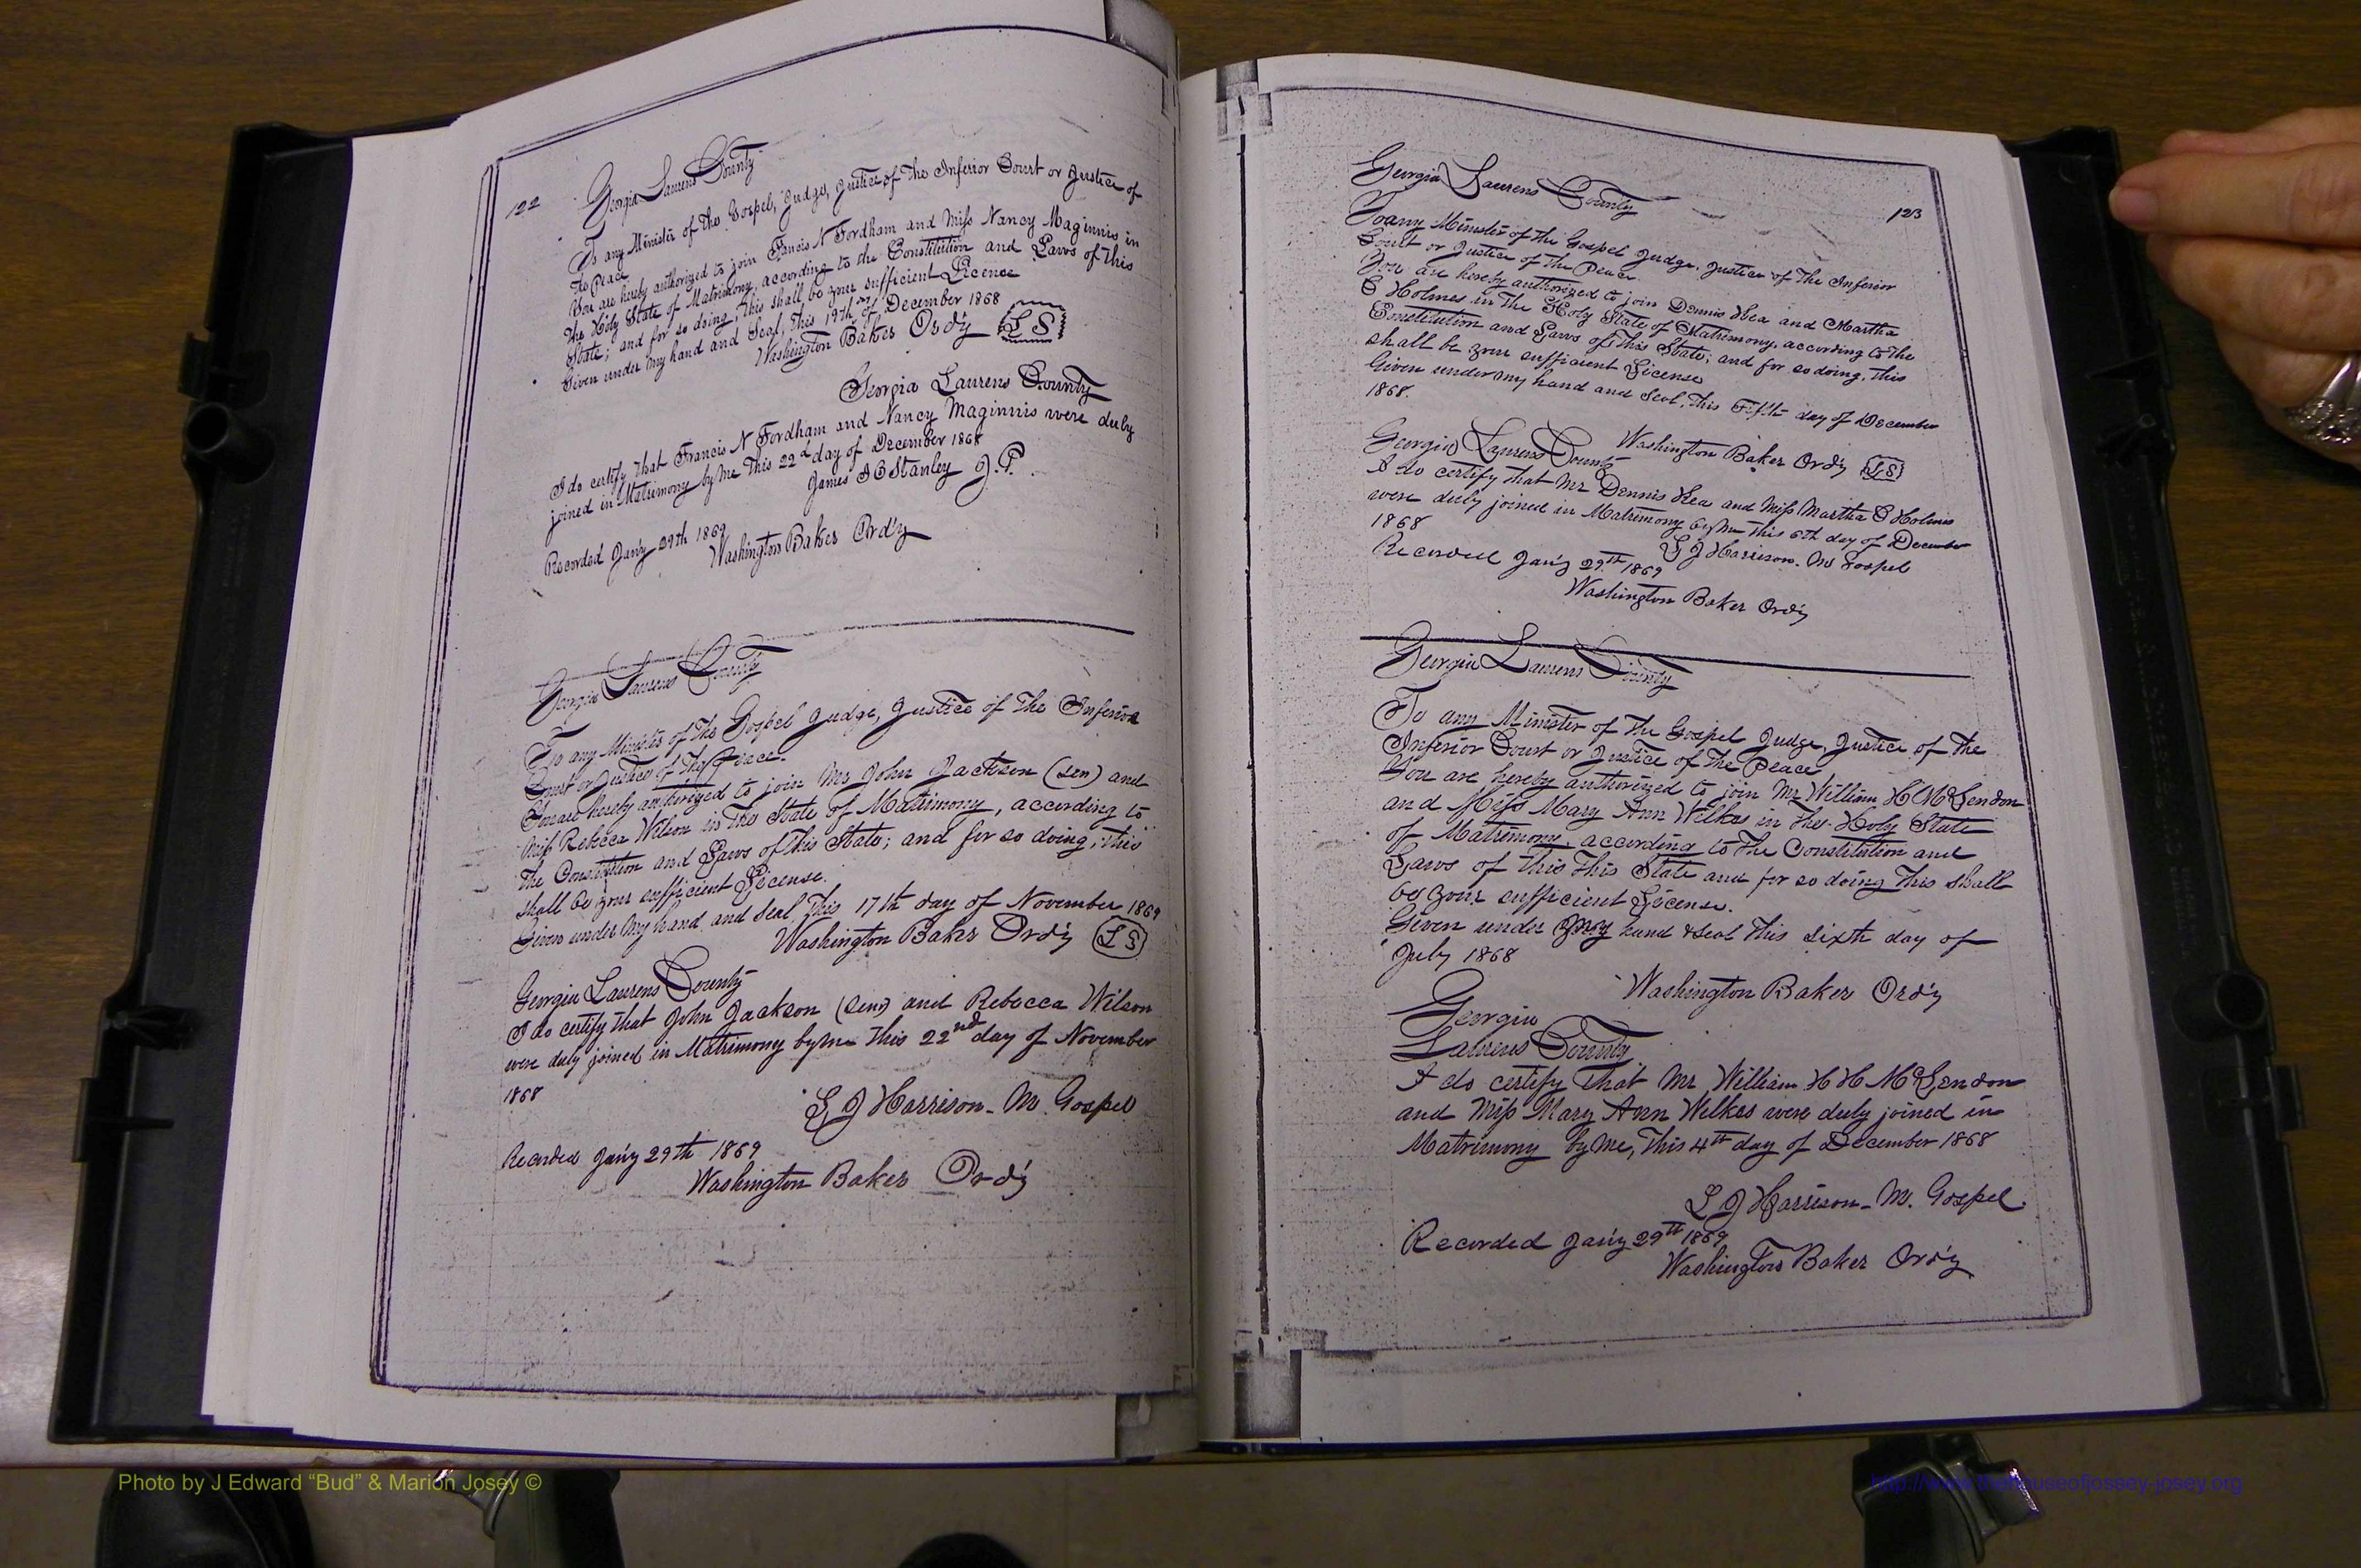 122
Georgia Laurens County
To any Minister of the Gospel, Judge, Justice of the Inferior Court or Justice of
the Peace
You are hereby authorized to join Francis N Fordham and Miss Nancy Maginnis in
the Holy State of Matrimony, according to the Constitution and Laws of this
State; and for so doing, this shall be your sufficient Licence
Given under my hand and Seal, this 19th of December 1868
Washington Baker Ord'y L S
Georgia Laurens County
I do certify that Francis N Fordham and Nancy Maginnis were duly
joined in Matrimony by me this 22d day of December 1868
James B Stanley J.P.
Recorded Jany 29th 1869
Washington Baker Ord'y
Georgia Laurens County
To any Minister of the Gospel Judge, Justice of the Inferior
Court or Justice of the Peace.
You are hereby authorized to join Mr John Jackson (Sen) and
Miss Rebecca Wilson in the State of Matrimony, according to
the Constitution and Laws of this State; and for so doing, this
shall be your sufficient License.
Given under my hand, and Seal, this 17th day of November 1869
Washington Baker Ord'y L S
Georgia Laurens County
I do certify that John Jackson (Sen) and Rebecca Wilson
were duly joined in Matrimony by me this 22nd day of November
1868
L J Harrison - M. Gospel
Recorded Jany 29th 1869
Washington Baker Ord'y
123
Georgia Laurens County
To any Minister of the Gospel Judge, Justice of the Inferior
Court or Justice of the Peace.
You are hereby authorized to join Dennis Kea and Martha
E Holmes in the Holy State of Matrimony, according to the
Constitution and Laws of this State; and for so doing, this
shall be your sufficient License
Given under my hand and Seal, this Fifth day of December
1868.
Washington Baker Ord'y L S
Georgia Laurens County
I do certify that Mr Dennis Kea and Miss Martha E Holmes
were duly joined in Matrimony by me this 6th day of December
1868
L J Harrison - M Gospel
Recorded Jany 29th 1869
Washington Baker Ord'y
Georgia Laurens County
To any Minister of the Gospel Judge, Justice of the
Inferior Court or Justice of the Peace
You are hereby authorized to join Mr William H H McLendon
and Miss Mary Ann Wilkes in the Holy State
of Matrimony, according to the Constitution and
Laws of this This State and for so doing this shall
be your sufficient License.
Given under my hand & Seal this sixth day of
July 1868
Washington Baker Ord'y
Georgia
Laurens County
I do certify that Mr William H H McLendon
and Miss Mary Ann Wilkes were duly joined in
Matrimony by me, this 4th day of December 1868
L J Harrison - M. Gospel
Recorded Jany 29th 1869
Washington Baker Ord'y
Photo by J Edward “Bud” & Marion Josey ©
http://www.thehouseofjossey-josey.org